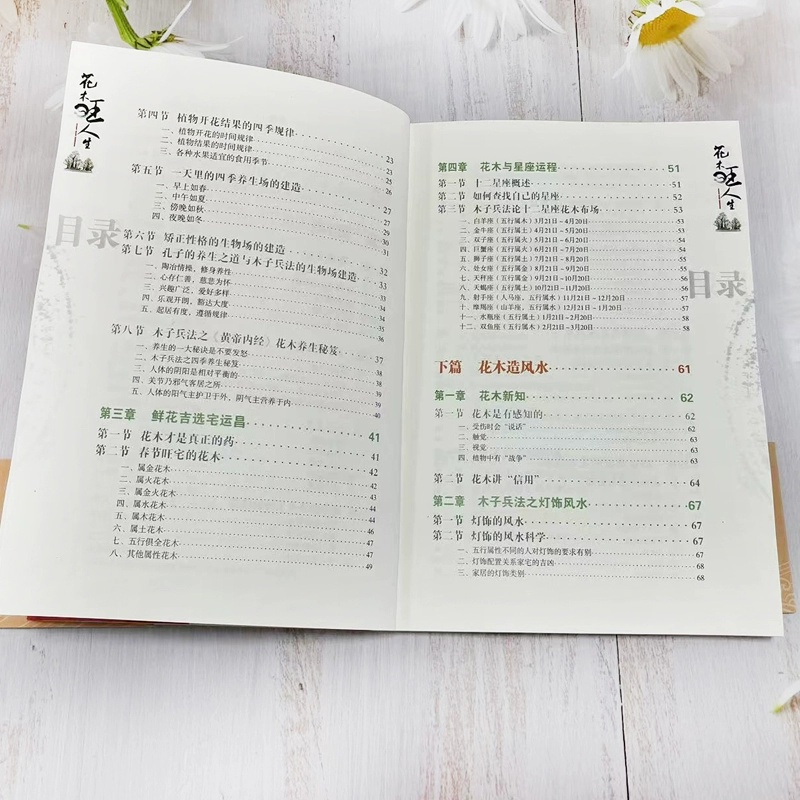 花木旺人生
目录
第四节 植物开花结果的四季规律 23
一、植物开花的时间规律 23
二、植物结果的时间规律 25
三、各种水果适宜的食用季节 26
第五节 一天里的四季养生场的建造 27
一、早上如春 27
二、中午如夏 29
三、傍晚如秋 30
四、夜晚如冬 31
第六节 矫正性格的生物场的建造 32
第七节 孔子的养生之道与木子兵法的生物场建造 33
一、陶冶情操，修身养性 33
二、心存仁善，慈悲为怀 34
三、兴趣广泛，爱好多样 34
四、乐观开朗，豁达大度 35
五、起居有度，遵循规律 36
第八节 木子兵法之《黄帝内经》花木养生秘笈 37
一、养生的一大秘诀是不要发怒 38
二、木子兵法之四季养生秘笈 38
三、人体的阴阳是相对平衡的 39
四、关节乃邪气客居之所 39
五、人体的阳气主护卫于外，阴气主营养于内 40
第三章 鲜花吉选宅运昌 41
第一节 花木才是真正的药 41
第二节 春节旺宅的花木 42
一、属金花木 42
二、属火花木 43
三、属金火花木 44
四、属水花木 44
五、属木花木 44
六、属土花木 46
七、五行俱全花木 47
八、其他属性花木 49
花木旺人生
目录
第四章 花木与星座运程 51
第一节 十二星座概述 51
第二节 如何查找自己的星座 52
第三节 木子兵法论十二星座花木布场 53
一、白羊座（五行属火）3月21日－4月20日 53
二、金牛座（五行属土）4月21日－5月20日 53
三、双子座（五行属火）5月21日－6月20日 54
四、巨蟹座（五行属火）6月21日－7月20日 54
五、狮子座（五行属土）7月21日－8月20日 55
六、处女座（五行属金）8月21日－9月20日 55
七、天秤座（五行属金）9月21日－10月20日 56
八、天蝎座（五行属土）10月21日－11月20日 56
九、射手座（人马座，五行属水）11月21日－12月20日 57
十、摩羯座（山羊座，五行属水）12月21日－1月20日 57
十一、水瓶座（五行属土）1月21日－2月20日 58
十二、双鱼座（五行属木）2月21日－3月20日 58
下篇 花木造风水 61
第一章 花木新知 62
第一节 花木是有感知的 62
一、受伤时会“说话” 62
二、触觉 63
三、视觉 63
四、植物中有“战争” 63
第二节 花木讲“信用” 64
第二章 木子兵法之灯饰风水 67
第一节 灯饰的风水 67
第二节 灯饰的风水科学 67
一、五行属性不同的人对灯饰的要求有别 67
二、灯饰配置关系家宅的吉凶 68
三、家居的灯饰类别 68